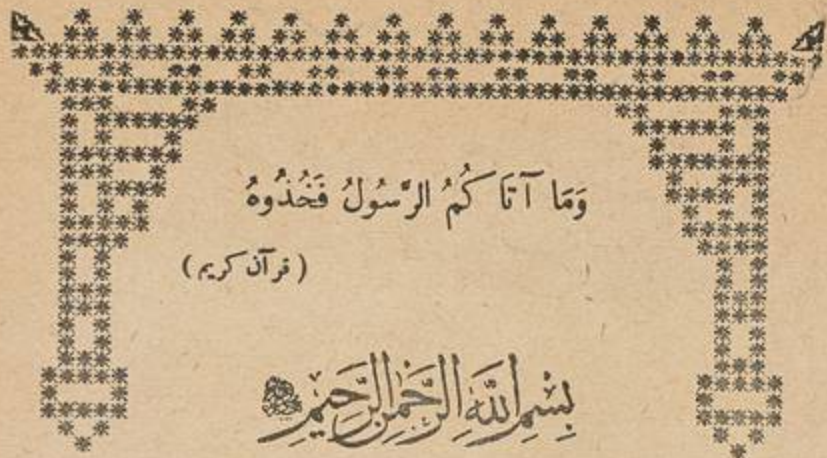 وَمَا آتَاكُمُ الرَّسُولُ فَخُذُوهُ
( قرآن كريم )
بِسْمِ اللَّهِ الرَّحْمٰنِ الرَّحِيْمِ